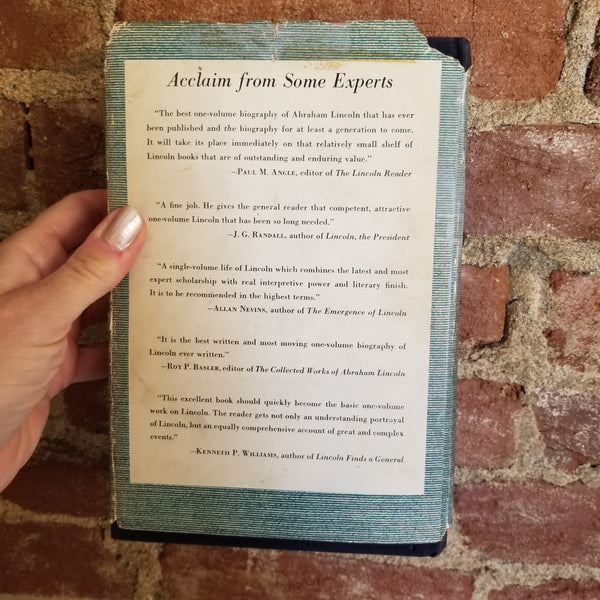 Acclaim from Some Experts
“The best one-volume biography of Abraham Lincoln that has ever
been published and the biography for at least a generation to come.
It will take its place immediately on that relatively small shelf of
Lincoln books that are of outstanding and enduring value.”
—PAUL M. ANGLE, editor of The Lincoln Reader
“A fine job. He gives the general reader that competent, attractive
one-volume Lincoln that has been so long needed.”
—J. G. RANDALL, author of Lincoln, the President
“A single-volume life of Lincoln which combines the latest and most
expert scholarship with real interpretive power and literary finish.
It is to be recommended in the highest terms.”
—ALLAN NEVINS, author of The Emergence of Lincoln
“It is the best written and most moving one-volume biography of
Lincoln ever written.”
—ROY P. BASLER, editor of The Collected Works of Abraham Lincoln
“This excellent book should quickly become the basic one-volume
work on Lincoln. The reader gets not only an understanding portrayal
of Lincoln, but an equally comprehensive account of great and complex
events.”
—KENNETH P. WILLIAMS, author of Lincoln Finds a General